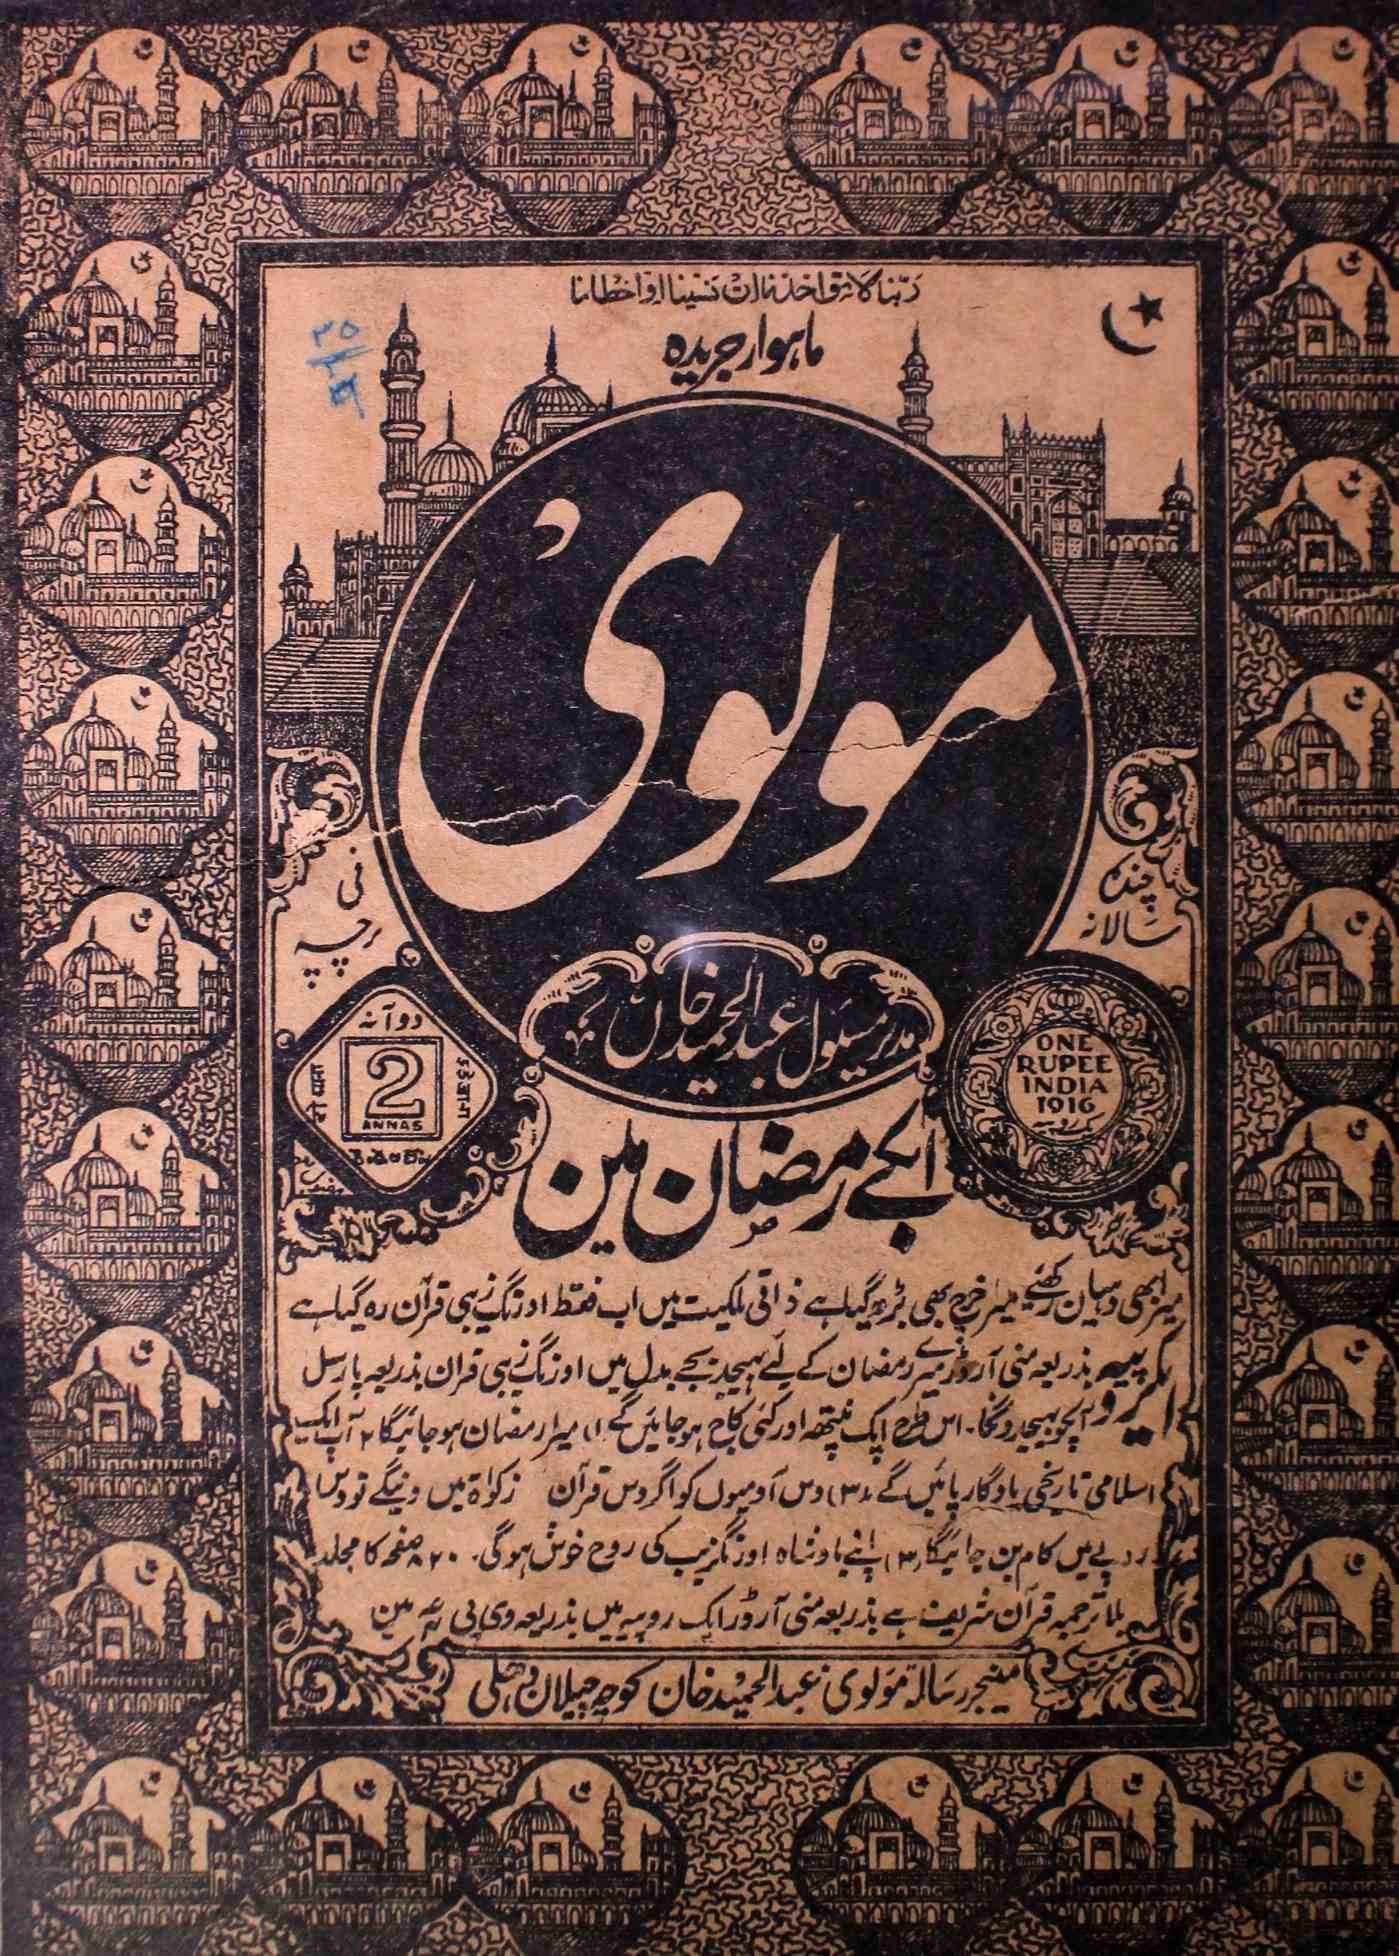 ربّنا لا تؤاخذنا ان نسینا او اخطانا
ماہوار جریدہ
مولوی
چندہ
سالانہ
فی
پرچہ
مدیر مسئول عبدالحمید خاں
دو آنہ
2
ANNAS
ONE
RUPEE
INDIA
1916
ایک روپیہ
ابکے رمضان میں
میرا بھی دہیان رکھئے میرا خرچ بھی بڑھ گیا ہے ذاتی ملکیت میں اب فقط اورنگ زیبی قرآن رہ گیا ہے
ایک روپیہ بذریعہ منی آرڈر میرے رمضان کے لیے بھیجد یجے بدل میں اورنگ زیبی قران بذریعہ پارسل
آپکو بھیجدونگا۔ اس طرح ایک پنتھ اور کئی کاج ہوجائیں گے (۱) میرا رمضان ہوجائیگا ۲ آپ ایک
اسلامی تاریخی یادگار پائیں گے (۳) دس آدمیوں کو اگر دس قرآن زکوٰۃ میں دینگے تو دس
روپے میں کام بن جائیگا (۴) اپنے بادشاہ اورنگزیب کی روح خوش ہوگی۔ ۸۲۰ صفحہ کا مجلد
بلا ترجمہ قرآن شریف ہے بذریعہ منی آرڈر ایک روپیہ میں بذریعہ وی پی میں
منیجر رسالہ مولوی عبدالحمید خان کوچہ چیلان دہلی